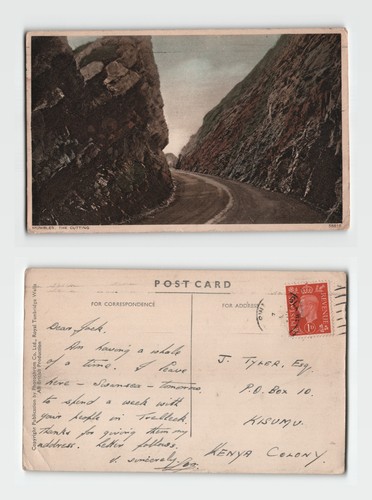 MUMBLES, THE CUTTING
POST CARD
FOR CORRESPONDENCE
FOR ADDRESS
Copyright Publication by Photochrom Co., Ltd., Royal Tunbridge Wells
All-British Production
Dear Jack.
Am having a whale
of a time. I leave
here - Swansea - tomorrow
to spend a week with
your people in
Thanks for giving them my
address. Letter follows.
sincerely
J. TYLER, Esq.
P.O. Box 10.
KISUMU.
KENYA COLONY.